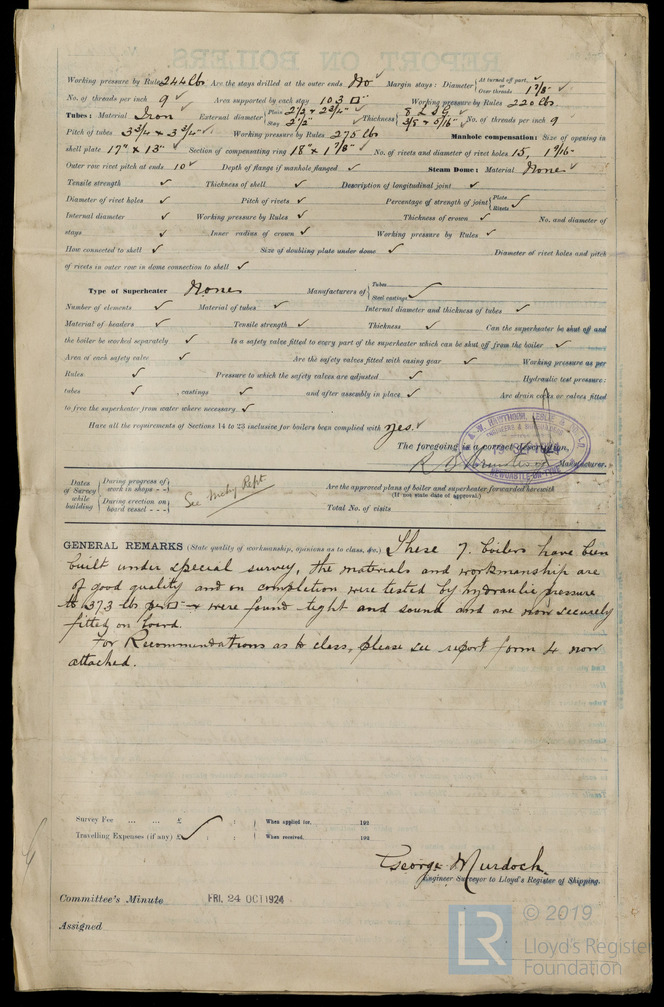 Working pressure by Rules 244 lbs Are the stays drilled at the outer ends No Margin stays: Diameter { At turned off part, or Over threads 1 7/8"
No. of threads per inch 9 Area supported by each stay 103 □" Working pressure by Rules 220 lbs.
Tubes: Material Iron External diameter { Plain 2 1/2 + 2 3/4" Stay 2 1/2" Thickness { 8 L S G 3/8 + 5/16" No. of threads per inch 9
Pitch of tubes 3 3/4 x 3 3/4" Working pressure by Rules 275 lbs Manhole compensation: Size of opening in
shell plate 17" x 13" Section of compensating ring 18" x 1 7/8" No. of rivets and diameter of rivet holes 15, 1 9/16"
Outer row rivet pitch at ends 10 Depth of flange if manhole flanged Steam Dome: Material None
Tensile strength Thickness of shell Description of longitudinal joint
Diameter of rivet holes Pitch of rivets Percentage of strength of joint { Plate Rivets
Internal diameter Working pressure by Rules Thickness of crown No. and diameter of
stays Inner radius of crown Working pressure by Rules
How connected to shell Size of doubling plate under dome Diameter of rivet holes and pitch
of rivets in outer row in dome connection to shell
Type of Superheater None Manufacturers of { Tubes Steel castings
Number of elements Material of tubes Internal diameter and thickness of tubes
Material of headers Tensile strength Thickness Can the superheater be shut off and
the boiler be worked separately Is a safety valve fitted to every part of the superheater which can be shut off from the boiler
Area of each safety valve Are the safety valves fitted with easing gear Working pressure as per
Rules Pressure to which the safety valves are adjusted Hydraulic test pressure:
tubes castings and after assembly in place Are drain cocks or valves fitted
to free the superheater from water where necessary
Have all the requirements of Sections 14 to 23 inclusive for boilers been complied with yes.
R. & W. HAWTHORN, LESLIE & CO. LD. ENGINEERS & NEWCASTLE-ON-TYNE
The foregoing is a correct description,
Manufacturer.
Dates of Survey while building { During progress of work in shops - - During erection on board vessel - - - See Mchy Rept. Are the approved plans of boiler and superheater forwarded herewith
(If not state date of approval.)
Total No. of visits
GENERAL REMARKS (State quality of workmanship, opinions as to class, &c.) These 7. boilers have been
built under special survey, the materials and workmanship are
of good quality and on completion were tested by hydraulic pressure
to 373 lbs per □" & were found tight and sound and are now securely
fitted on board.
For Recommendations as to class, please see report form 4 now
attached.
Survey Fee ... ... £ : : When applied for, 192
Travelling Expenses (if any) £ : : When received, 192
George Murdoch.
Engineer Surveyor to Lloyd's Register of Shipping.
Committee's Minute FRI. 24 OCT 1924
Assigned
LR © 2019
Lloyd's Register
Foundation